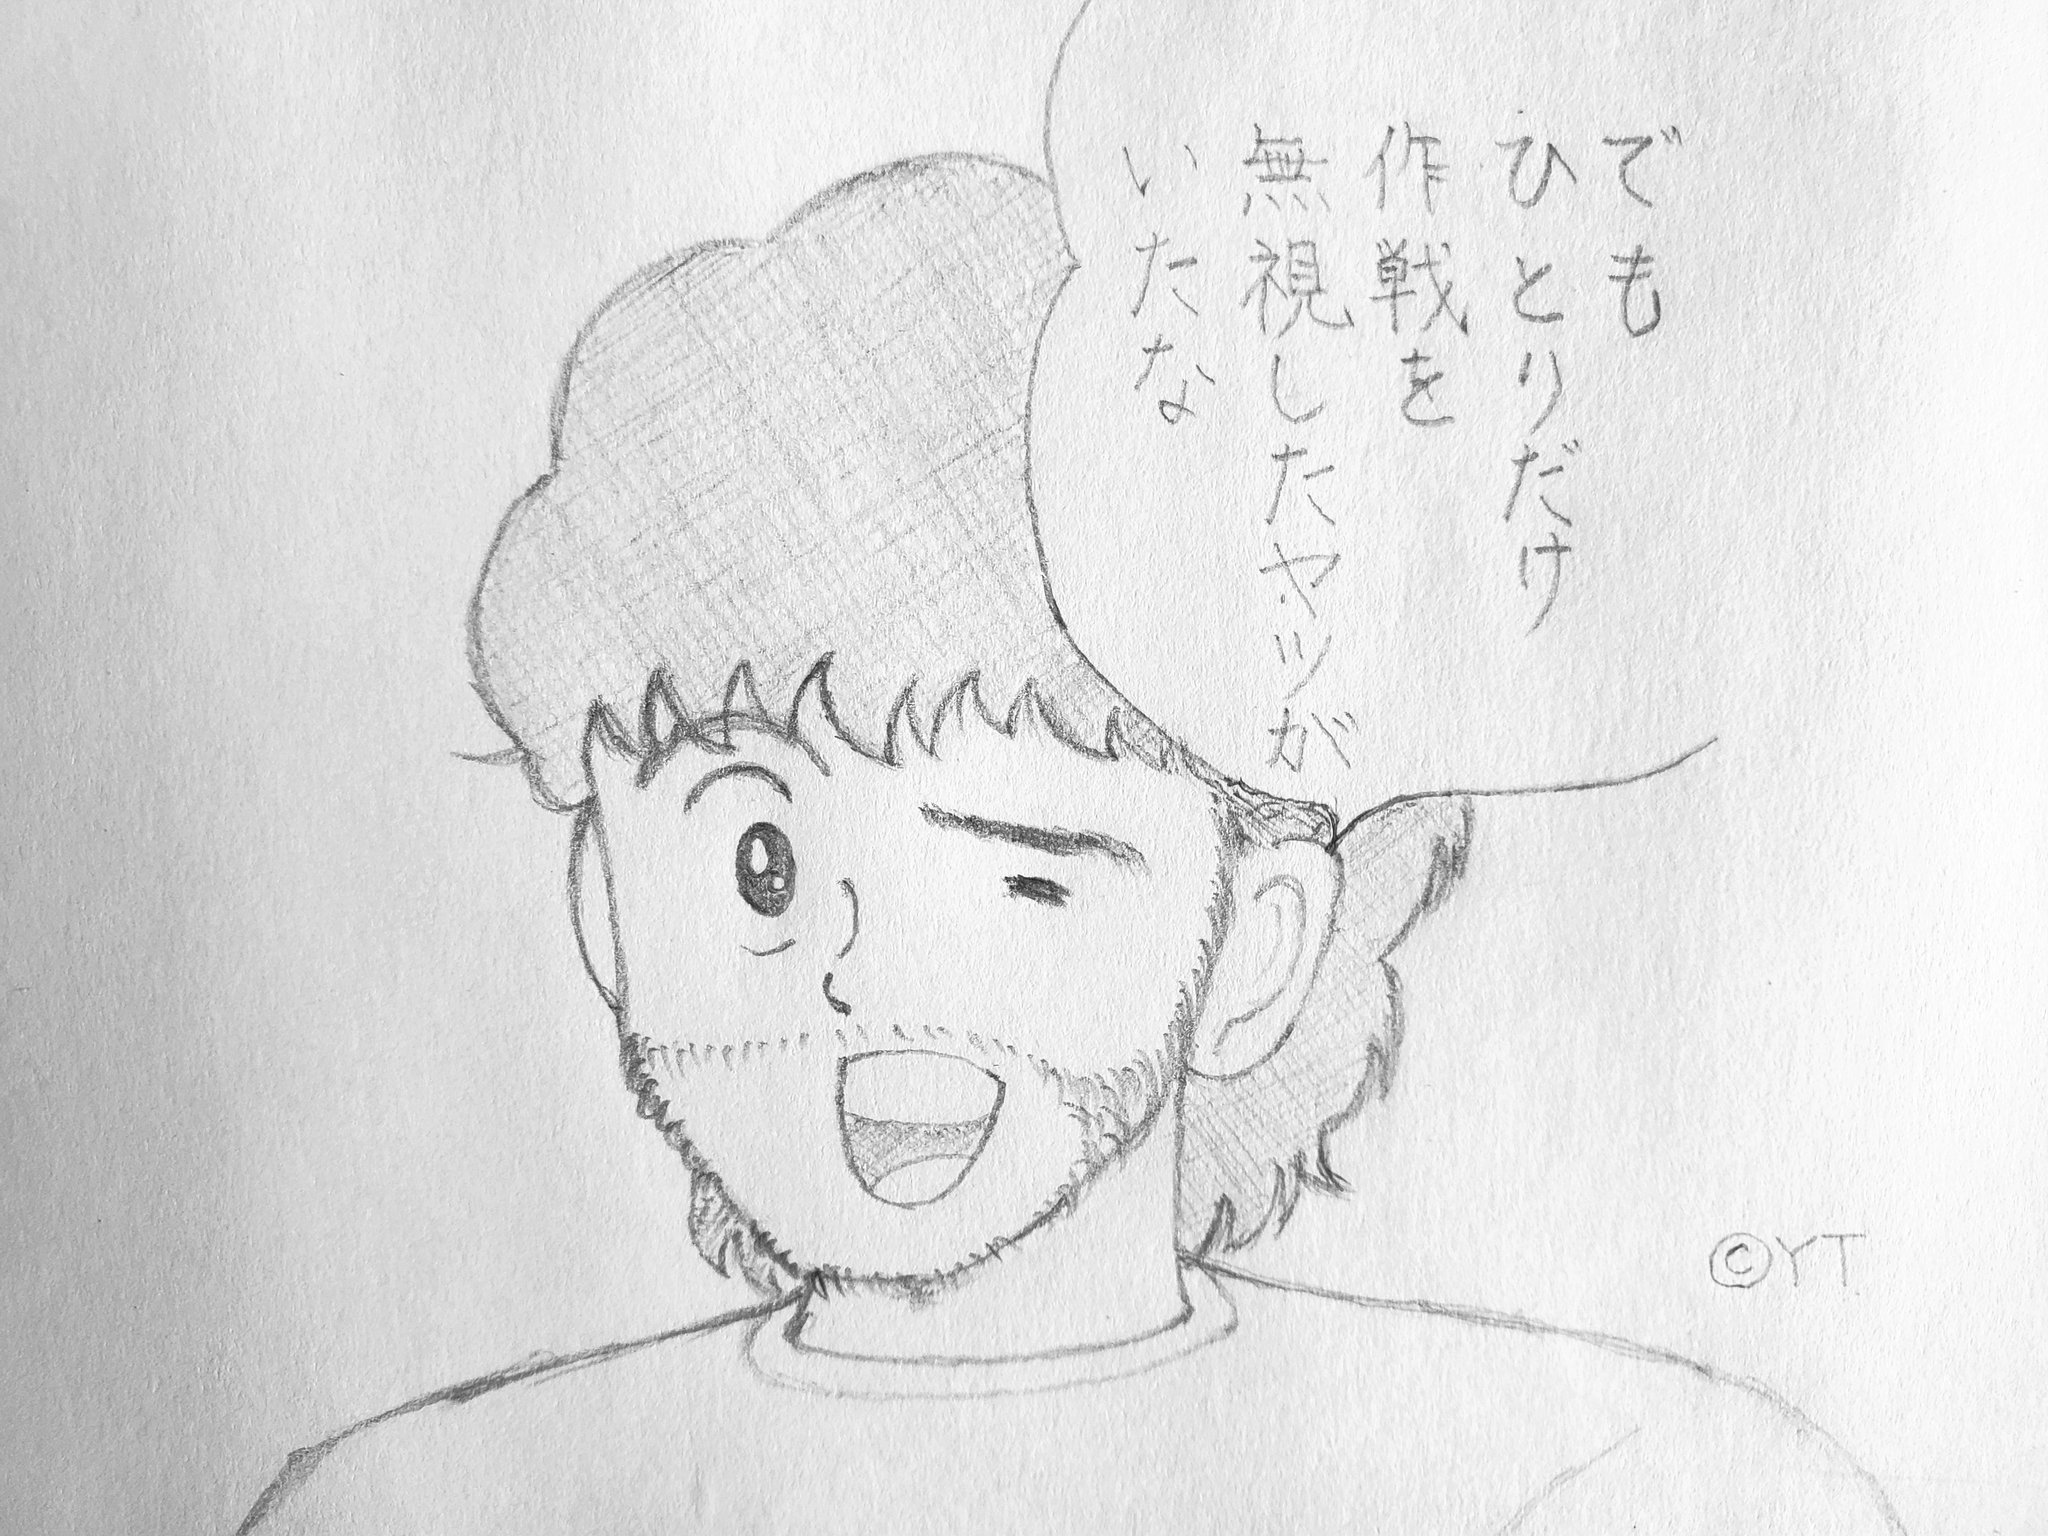 でも
ひとりだけ
作戦を
無視したヤツが
いたな
©YT